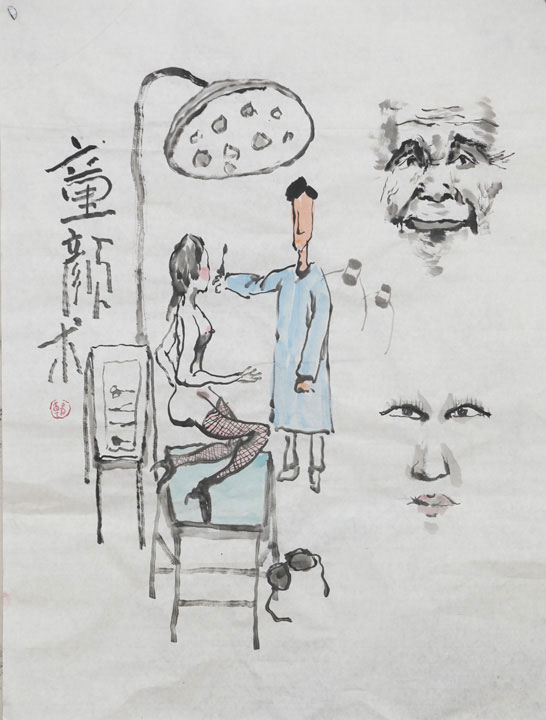 童颜术